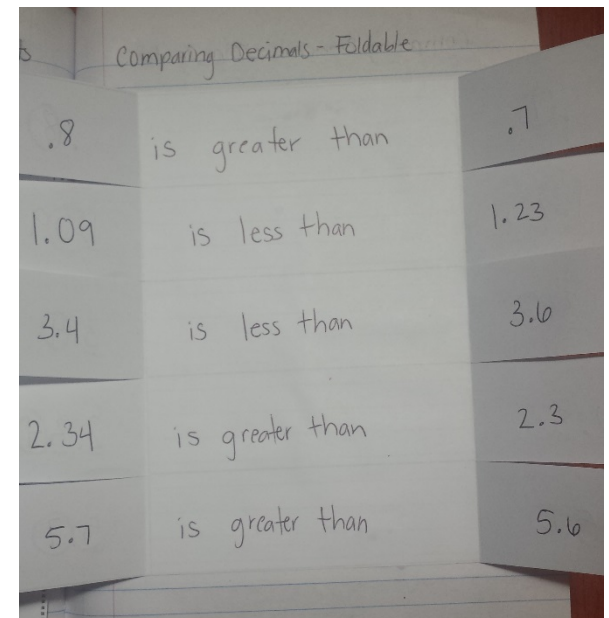 Comparing Decimals - Foldable
.8 is greater than .7
1.09 is less than 1.23
3.4 is less than 3.6
2.34 is greater than 2.3
5.7 is greater than 5.6